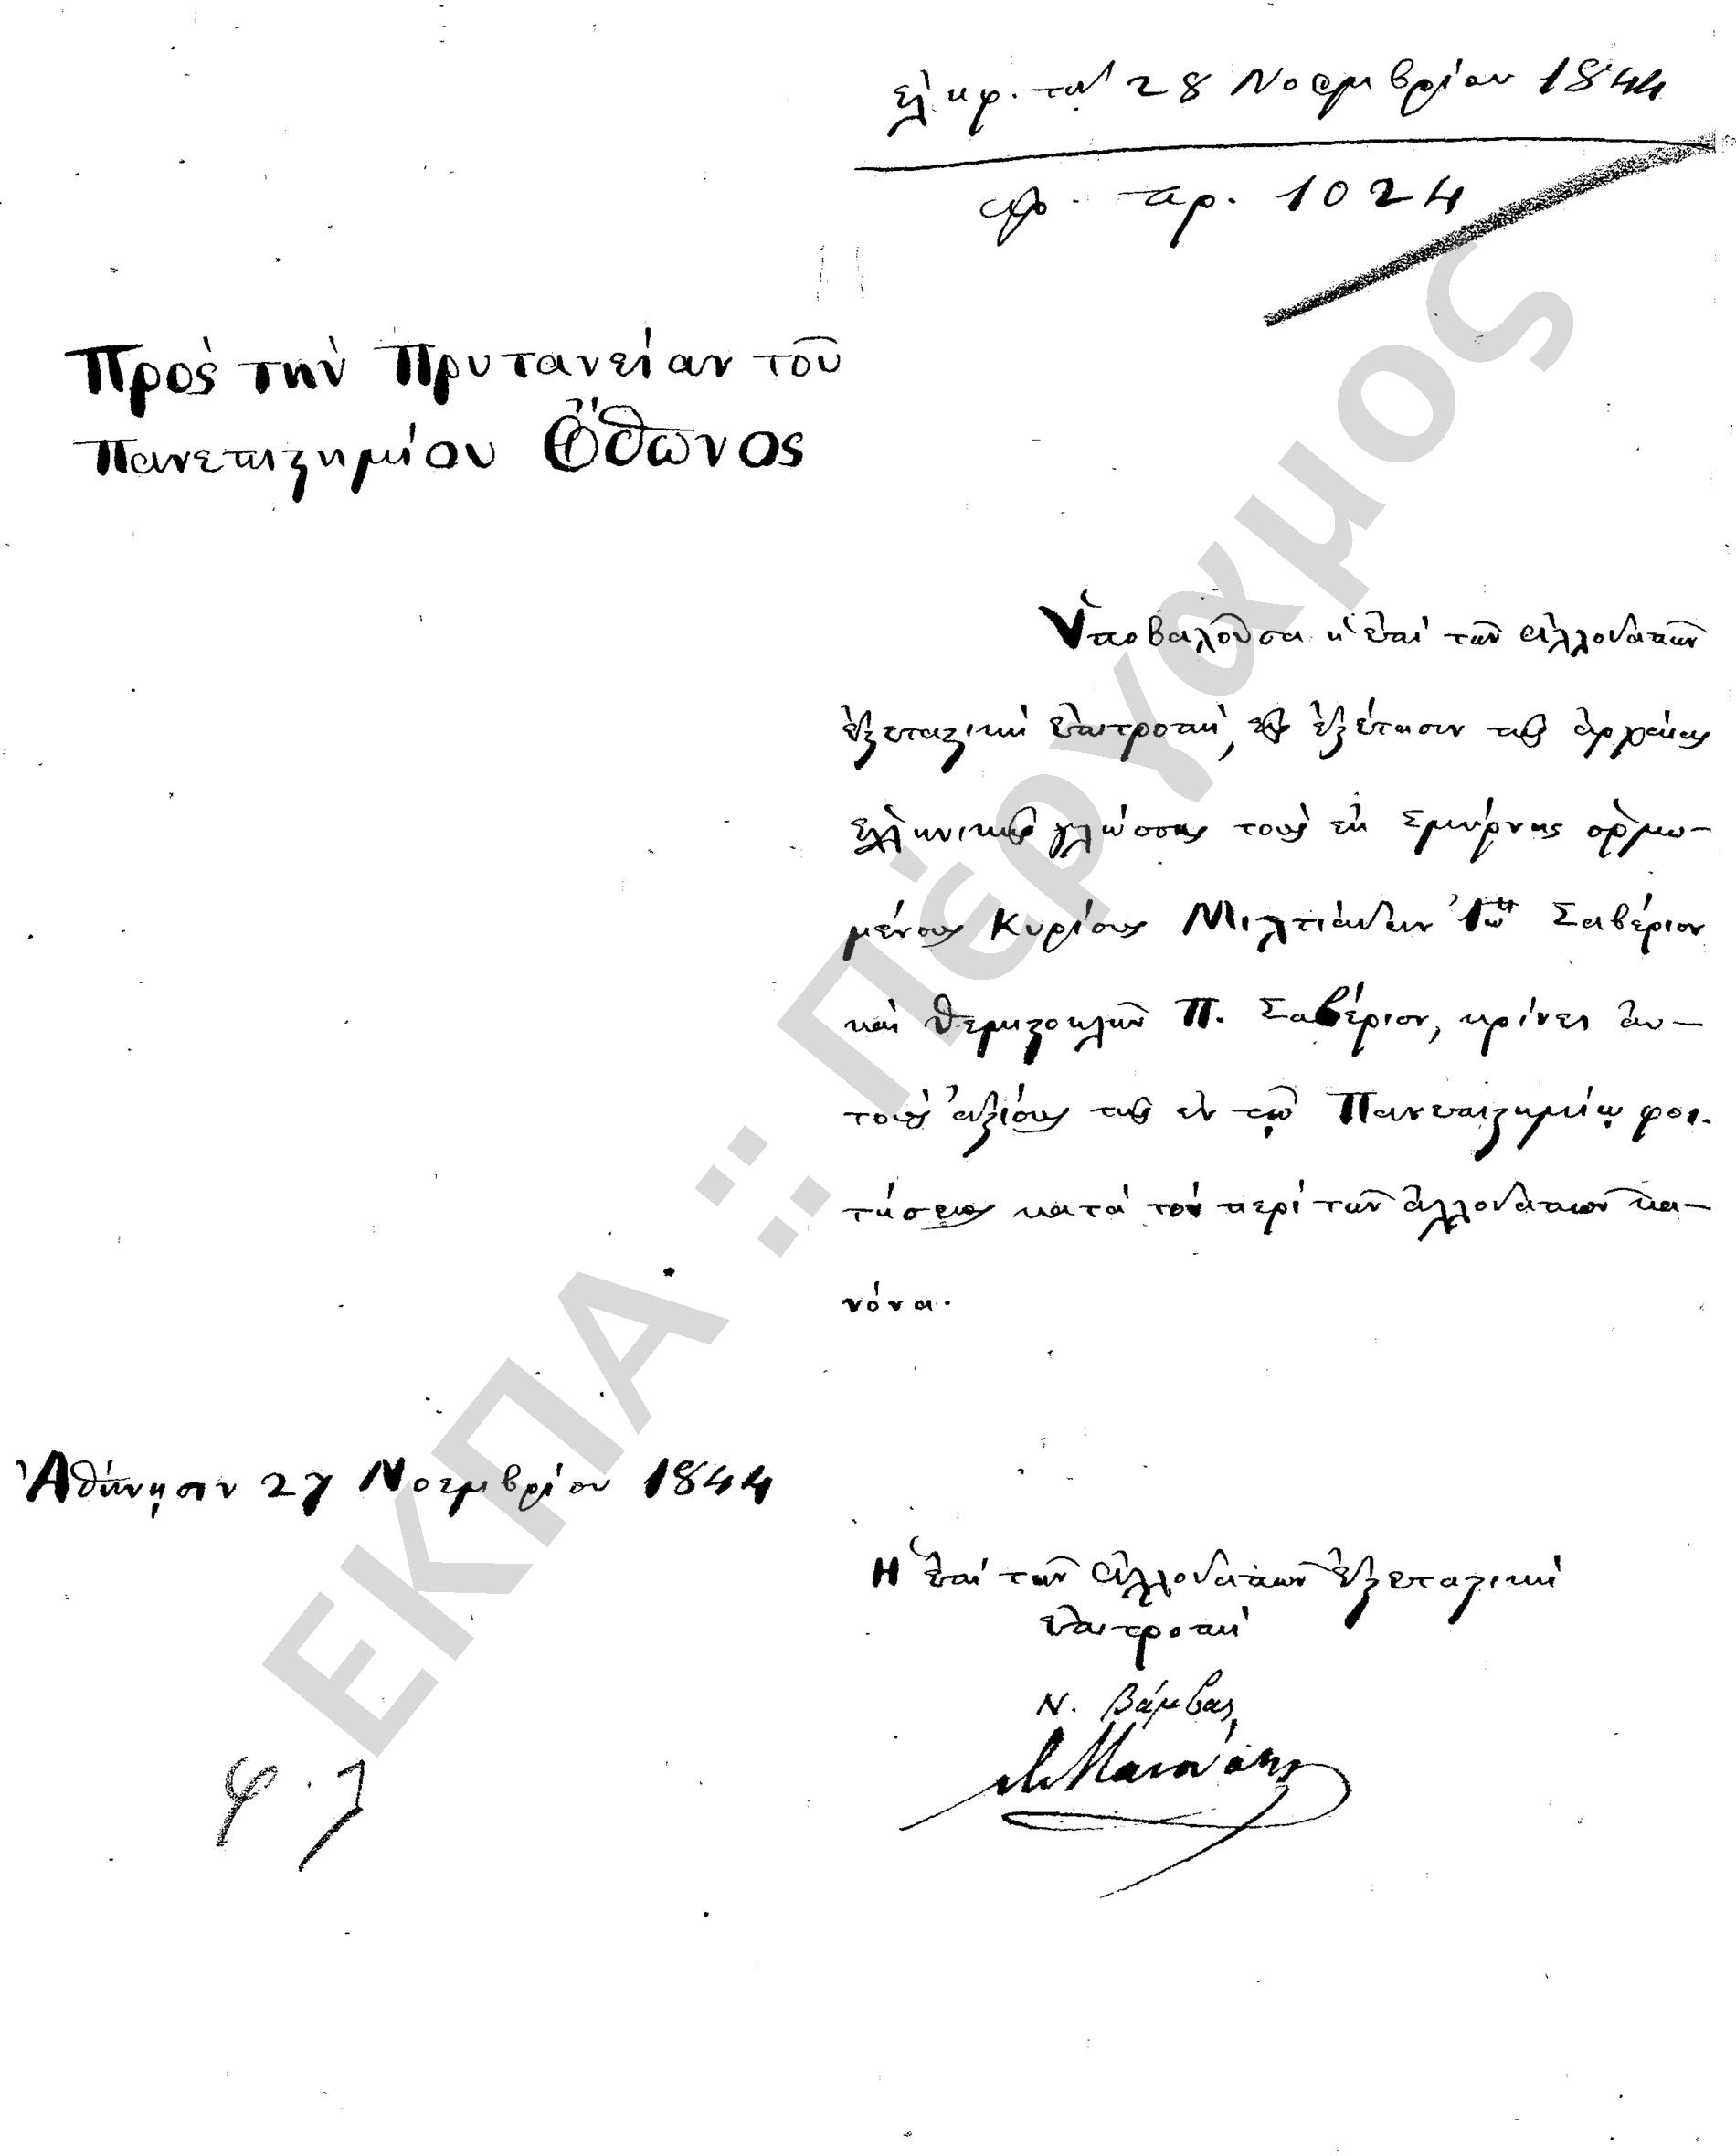 ἐλήφ. τὴν 28 Νοεμβρίου 1844
πρ. ἀρ. 1024
Πρὸς τὴν Πρυτανείαν τοῦ
Πανεπιστημίου Ὄθωνος
Ὑποβαλοῦσα ἡ ἐπὶ τῶν ἀλλοδαπῶν
ἐξεταστικὴ ἐπιτροπὴ, εἰς ἐξέτασιν τῆς ἀρχαίας
ἑλληνικῆς γλώσσης τοὺς ἐκ Σμύρνης ὁρμω-
μένους Κυρίους Μιλτιάδην Ἰω. Σαβέριον
καὶ Θεμιστοκλῆν Π. Σαβέριον, κρίνει αὐ-
τοὺς ἀξίους τῆς ἐν τῷ Πανεπιστημίῳ φοι-
τήσεως κατὰ τὸν περὶ τῶν ἀλλοδαπῶν κα-
νόνα.
Ἀθήνῃσιν 27 Νοεμβρίου 1844
Ἡ ἐπὶ τῶν ἀλλοδαπῶν ἐξεταστικὴ
ἐπιτροπὴ
Ν. Βάμβας
φ. 7
ΕΚΠΑ :: Πέργαμος